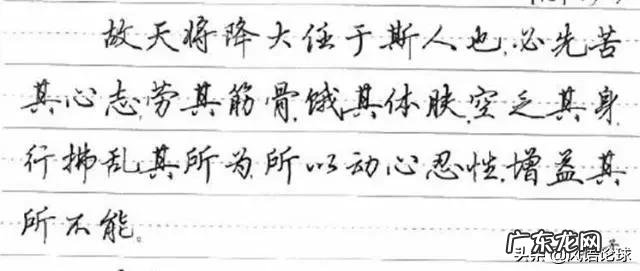 故天将降大任于斯人也,必先苦
其心志,劳其筋骨,饿其体肤,空乏其身,
行拂乱其所为,所以动心忍性,增益其
所不能。
广东龙网
头条@风语论球